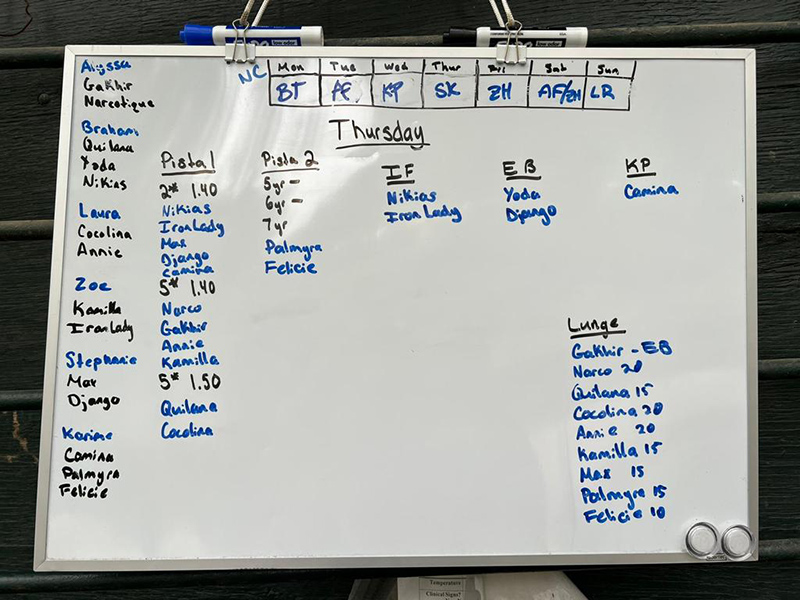 Alyssa
Gakhir
Narcotique
Braham
Quilana
Yoda
Nikias
Laura
Cocolina
Annie
Zoe
Kamilla
Iron Lady
Stephanie
Max
Django
Karime
Camina
Palmyra
Felicie
NC
Mon Tue Wed Thur Fri Sat Sun
BT AF KP SK ZH AF/ZH LR
Thursday
Pista 1
2* 1.40
Nikias
Iron Lady
Max
Django
Camina
5* 1.40
Narco
Gakhir
Annie
Kamilla
5* 1.50
Quilana
Cocolina
Pista 2
5yr -
6yr -
7yr
Palmyra
Felicie
IF
Nikias
Iron Lady
EB
Yoda
Django
KP
Camina
Lunge
Gakhir - EB
Narco 20
Quilana 15
Cocolina 20
Annie 20
Kamilla 15
Max 15
Palmyra 15
Felicie 10
Temperature
Clinical Signs?